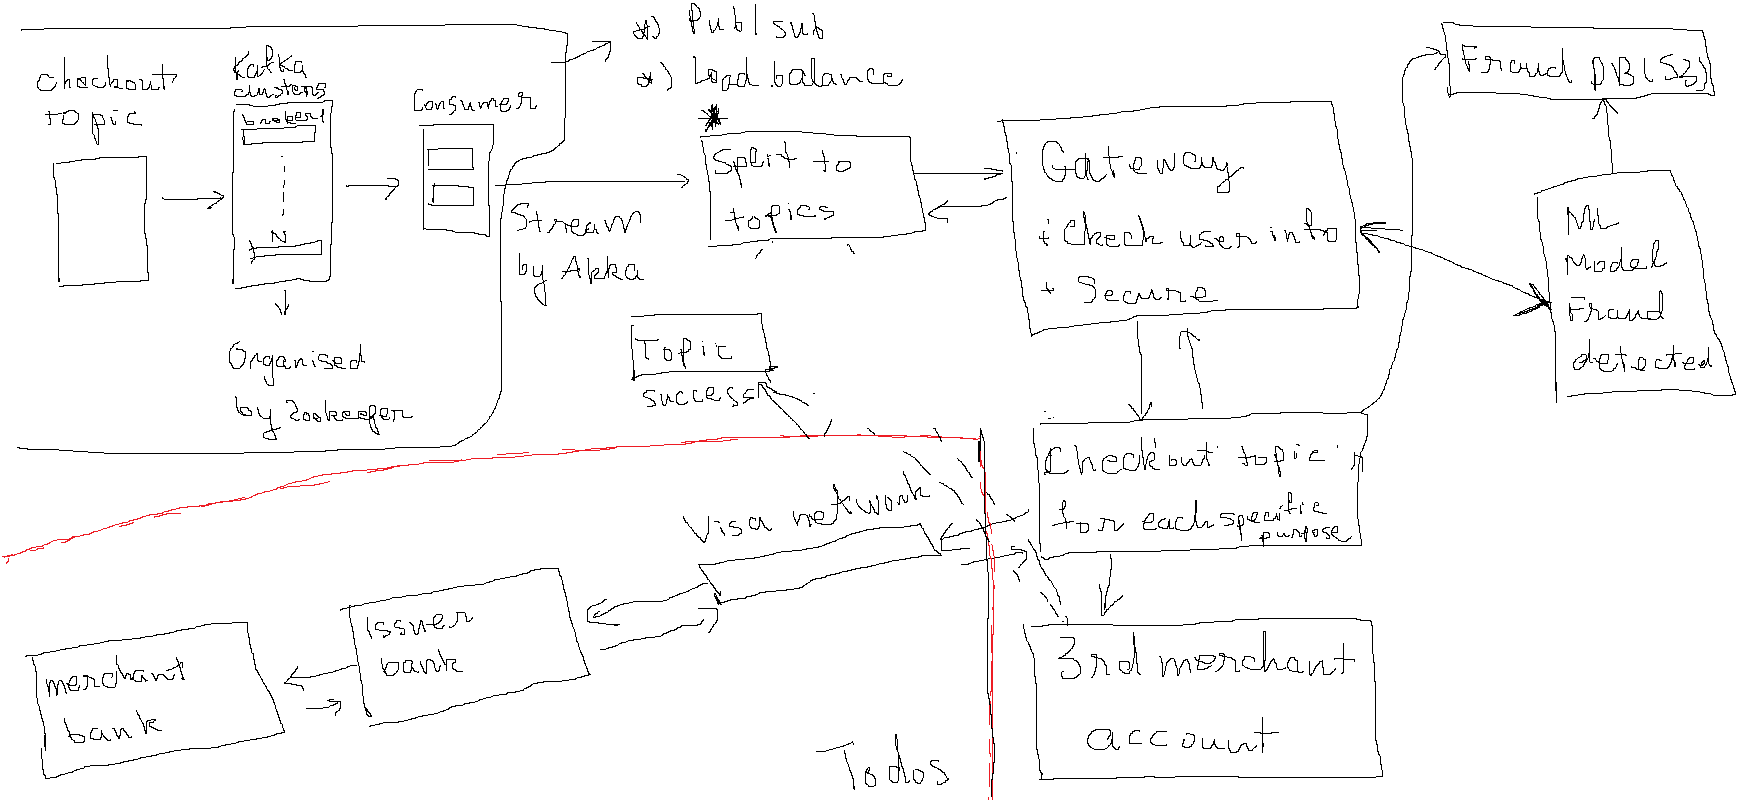 *) Publsub
*) Load balance
*
checkout
topic
Kafka
clusters
broker1
N
Consumer
Organised
by Zookeefer
Stream
by Akka
Split to
topics
Gateway
+ Check user info
+ Secure
Fraud DB(S3)
ML
Model
Fraud
detected
Topic
success
Checkout topic
for each specific
purpose
Visa network
issuer
bank
merchant
bank
3rd merchant
account
Todos